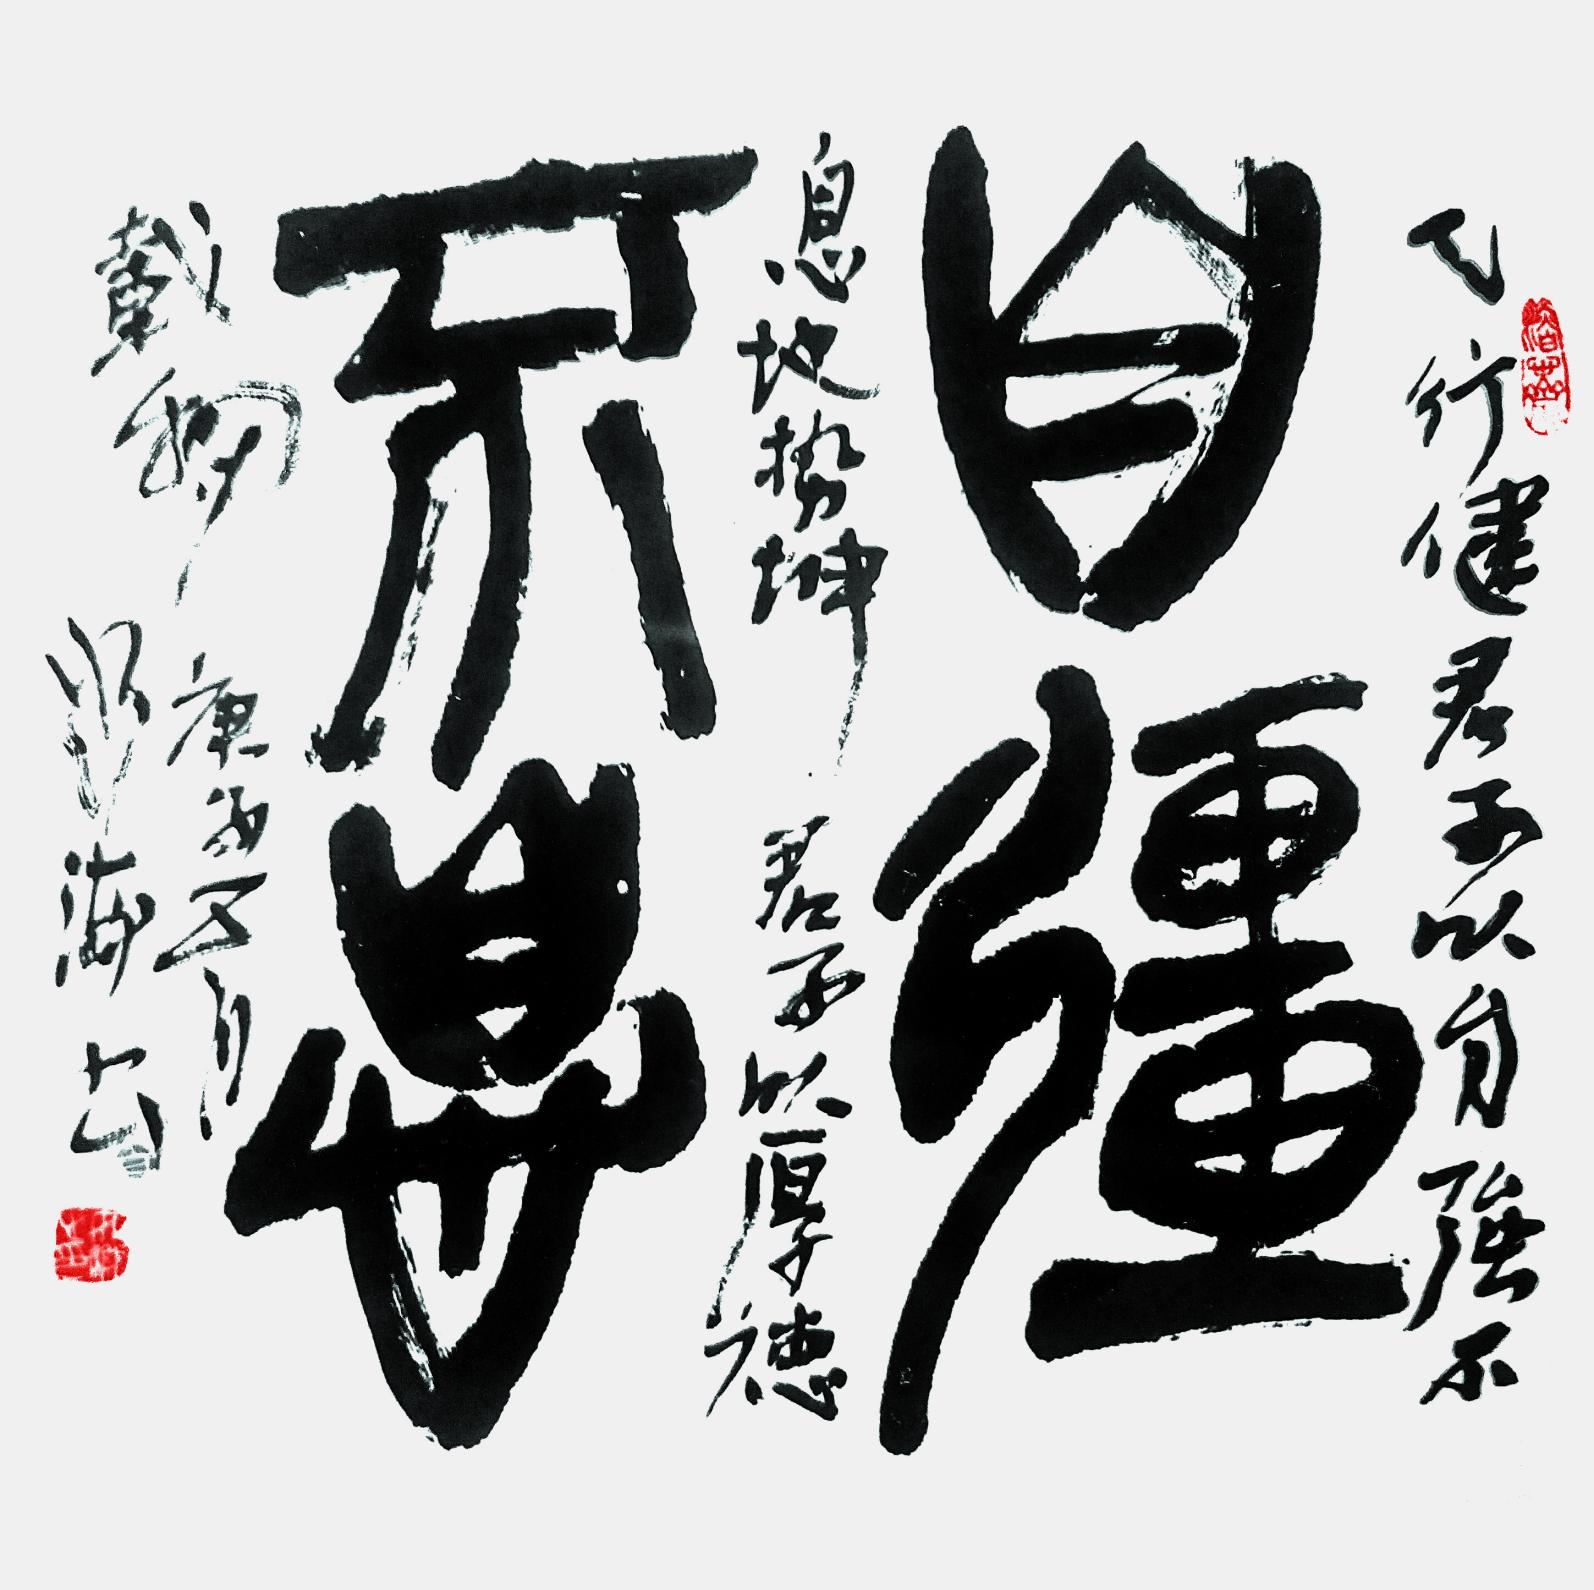 天行健君子以自强不
自彊
息地势坤君子以厚德
不息
载物
庚子五月
海上